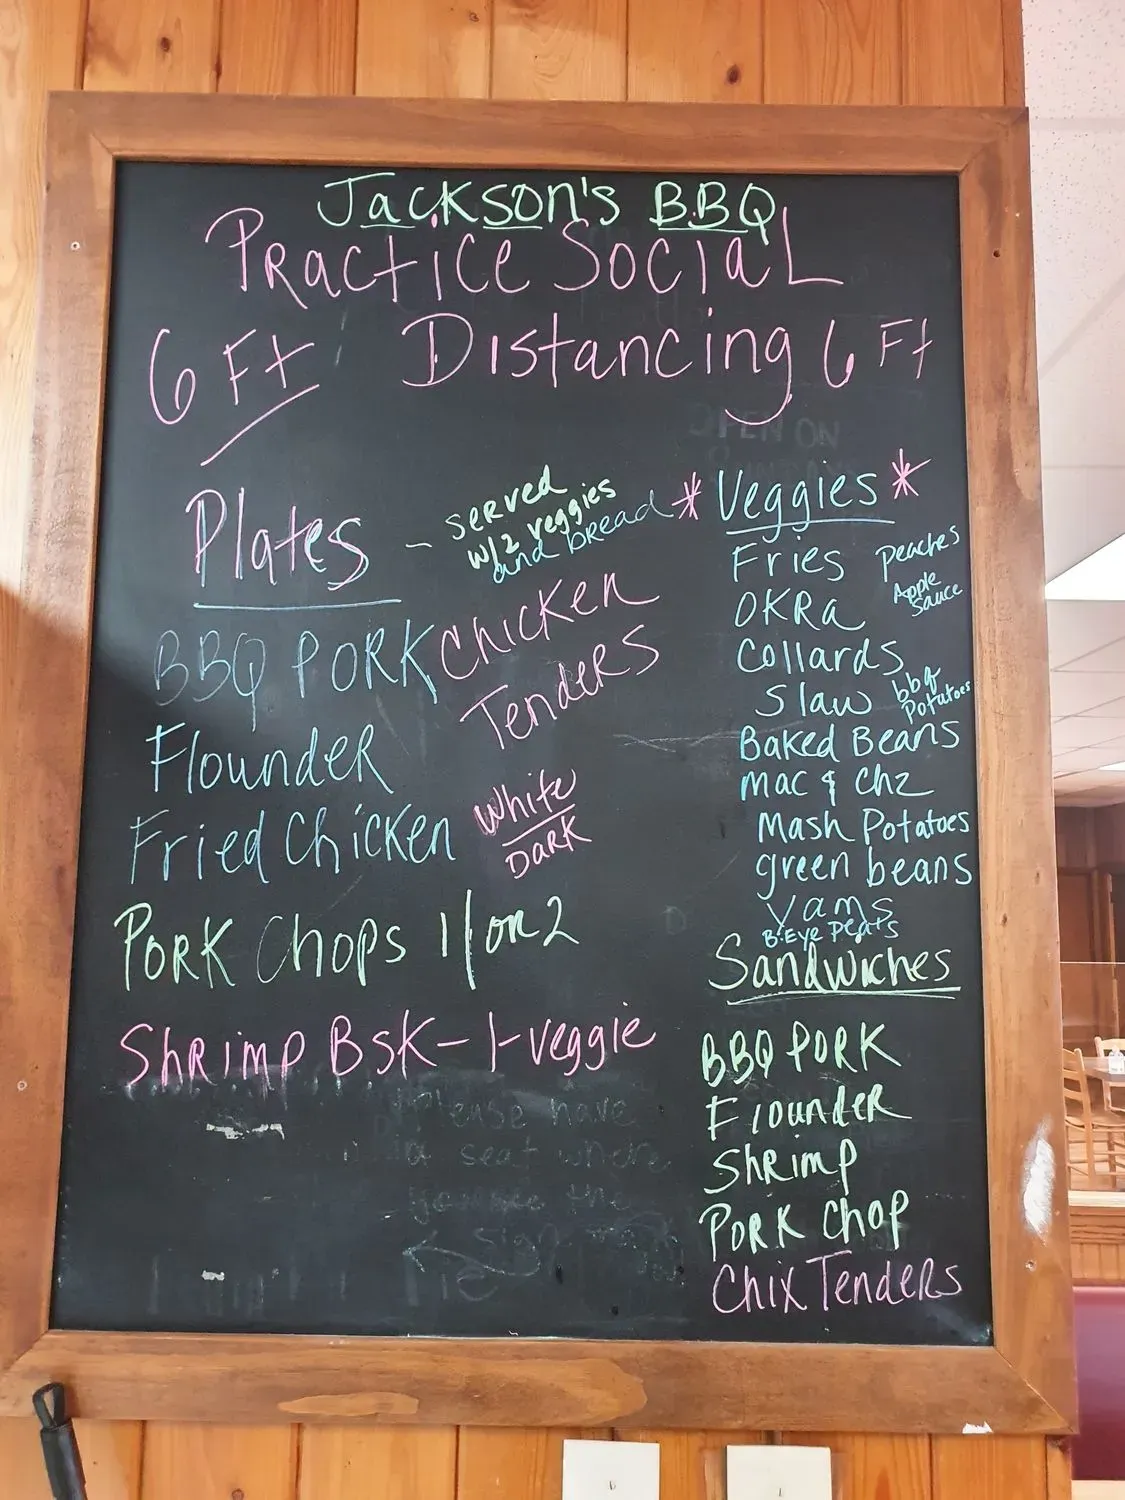 Jackson's BBQ
Practice Social
6 Ft Distancing 6 Ft
Plates - served
w/2 veggies
and bread
BBQ Pork
Chicken
Tenders
Flounder
Fried Chicken
White
Dark
Pork Chops 1/or 2
Shrimp Bsk - 1-veggie
* Veggies *
Fries
Peaches
Okra
Apple
Sauce
Collards
Slaw
bbq
Potatoes
Baked Beans
Mac & Chz
Mash Potatoes
green beans
Yams
B. Eye Peats
Sandwiches
BBQ Pork
Flounder
Shrimp
Pork Chop
Chix Tenders
Please have
a seat where
you see the
sign
OPEN ON